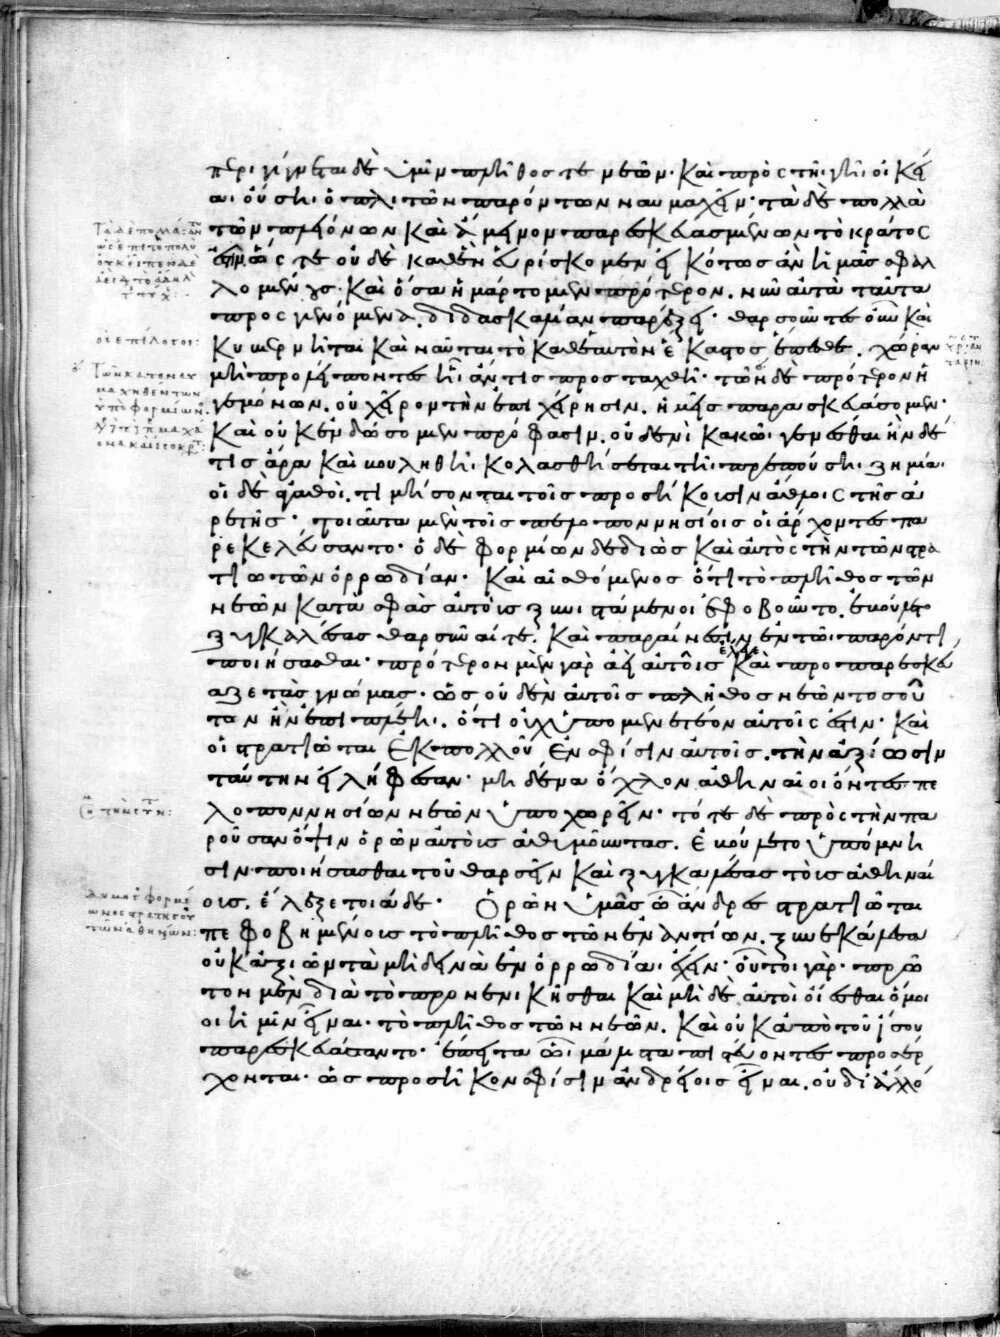 περιγίγνεται δὲ ὑμῖν πλῆθός τε νεῶν· καὶ πρὸς τῆι γῆι οἰκεί
αι οὔσηι ὁπλιτῶν παρόντων ναυμαχεῖν· τὰ δὲ πολλὰ
τῶν πλεόνων καὶ ἄμεινον παρεσκευασμένων τὸ κράτος
ἐστίν, ὥστε οὐδὲ καθ' ἓν εὑρίσκομεν εἰκότως ἂν ἡμᾶς σφαλ
λομένους· καὶ ὅσα ἡμάρτομεν πρότερον. νῦν αὐτὰ ταῦτα
προσγενόμενα. διδασκαλίαν παρέξει· θαρσοῦντες οὖν καὶ
κυβερνῆται καὶ ναῦται τὸ καθ' ἑαυτὸν ἕκαστος ἕπεσθε. χώραν
μὴ προλείποντες ἧι ἄν τις προσταχθῆι· τῶν δὲ πρότερον ἡ
γεμόνων. οὐ χεῖρον τὴν ἐπιχείρησιν. ἡμεῖς παρασκευάσομεν·
καὶ οὐκ ἐνδώσομεν πρόφασιν. οὐδενὶ κακῶι γενέσθαι ἢν δέ
τις ἄρα καὶ βουληθῆι. κολασθήσεται τῆι πρεπούσηι ζημίαι
οἱ δὲ ἀγαθοὶ. τιμήσονται τοῖς προσήκουσιν ἄθλοις τῆς ἀ
ρετῆς· τοιαῦτα μὲν τοῖς πελοποννησίοις οἱ ἄρχοντες πα
ρεκελεύσαντο· ὁ δὲ φορμίων δεδιὼς καὶ αὐτὸς τὴν τῶν στρα
τιωτῶν ὀρρωδίαν· καὶ αἰσθόμενος ὅτι τὸ πλῆθος τῶν
νεῶν κατὰ σφᾶς αὐτοὺς ξυνιστάμενοι ἐφοβοῦντο. ἐβούλετο
ξυγκαλέσας θαρσῦναί τε. καὶ παραίνεσιν ἐν τῶι παρόντι
ποιήσασθαι· πρότερον μὲν γὰρ ἀεὶ αὐτοῖς ἔλεγε καὶ προπαρεσκεύ
αζε τὰς γνώμας· ὡς οὐδὲν αὐτοῖς πλῆθος νεῶν τοσοῦ
τον ἢν ἐπιπλέηι. ὅτι οὐχ ὑπομενετέον αὐτοῖς ἐστιν· καὶ
οἱ στρατιῶται ἐκ πολλοῦ ἐν σφίσιν αὐτοῖς. τὴν ἀξίωσιν
ταύτην εἰλήφεσαν· μηδένα ὄχλον ἀθηναῖοι ὄντες πε
λοποννησίων νεῶν ὑποχωρεῖν· τότε δὲ πρὸς τὴν πα
ροῦσαν ὄψιν ὁρῶν αὐτοὺς ἀθυμοῦντας. ἐβούλετο ὑπόμνη
σιν ποιήσασθαι τοῦ θαρσεῖν καὶ ξυγκαλέσας τοὺς ἀθηναί
ους. ἔλεξε τοιάδε· Ὁρῶν ὑμᾶς ὦ ἄνδρες στρατιῶται
πεφοβημένους τὸ πλῆθος τῶν ἐναντίων. ξυνεκάλεσα
οὐκ ἀξιῶν τὰ μὴ δεινὰ ἐν ὀρρωδίαι ἔχειν· οὗτοι γὰρ πρῶ
τον μὲν διὰ τὸ προνενικῆσθαι καὶ μηδὲ αὐτοὶ οἴεσθαι ὁμοῖ
οι ἡμῖν εἶναι· τὸ πλῆθος τῶν νεῶν. καὶ οὐκ ἀπὸ τοῦ ἴσου
παρεσκευάσαντο· ἔπειτα ὧι μάλιστα πιστεύοντες προσέρ
χονται· ὡς προσῆκον σφίσιν ἀνδρείοις εἶναι. οὐ δι' ἄλλό
οἱ ἐπίλογοι: